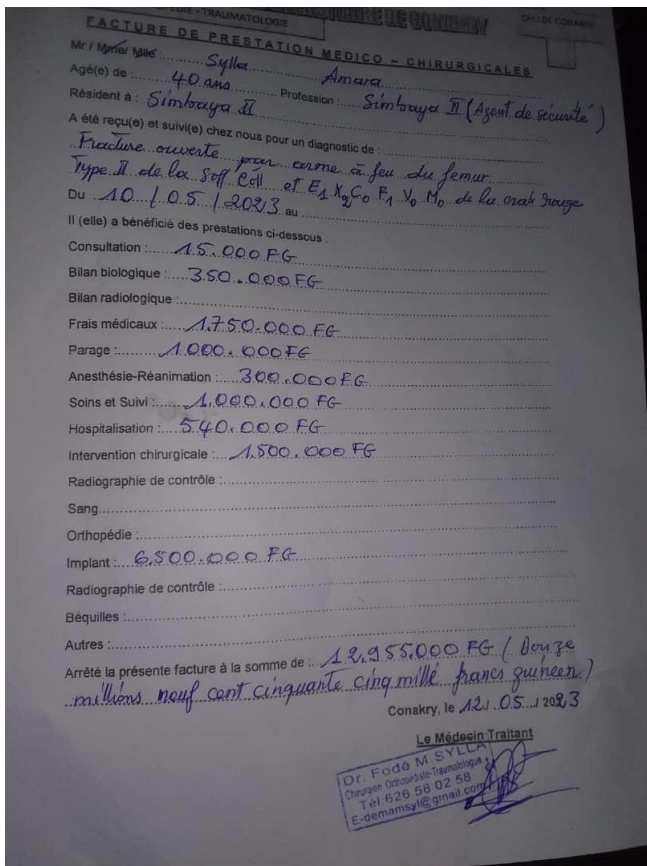 PÉDIE - TRAUMATOLOGIE
DE CONAKRY
CHU DE CONAKRY
FACTURE DE PRESTATION MEDICO – CHIRURGICALES
Mr / Mme/ Mlle Sylla Amara
Agé(e) de : 40 ans Profession : Simbaya II (Agent de sécurité)
Résident à : Simbaya II
A été reçu(e) et suivi(e) chez nous pour un diagnostic de :
Fracture ouverte par arme à feu du femur
Type II de la Soff Coll et E1 X2 C0 F1 V0 M0 de la croix rouge
Du 10 / 05 / 2023 au
Il (elle) a bénéficié des prestations ci-dessous :
Consultation : 15.000 FG
Bilan biologique : 350.000 FG
Bilan radiologique :
Frais médicaux : 1.750.000 FG
Parage : 1.000.000 FG
Anesthésie-Réanimation : 300.000 FG
Soins et Suivi : 1.000.000 FG
Hospitalisation : 540.000 FG
Intervention chirurgicale : 1.500.000 FG
Radiographie de contrôle :
Sang
Orthopédie :
Implant : 6.500.000 FG
Radiographie de contrôle :
Béquilles :
Autres :
Arrêté la présente facture à la somme de : 12.955.000 FG ( Douze
millions neuf cent cinquante cinq mille francs guinéen )
Conakry, le 12 / 05 / 2023
Le Médecin Traitant
Dr. Fodé M. SYLLA
Chirurgien Orthopédiste-Traumatologue
Tél: 626 58 02 58
E-demamsyl@gmail.com